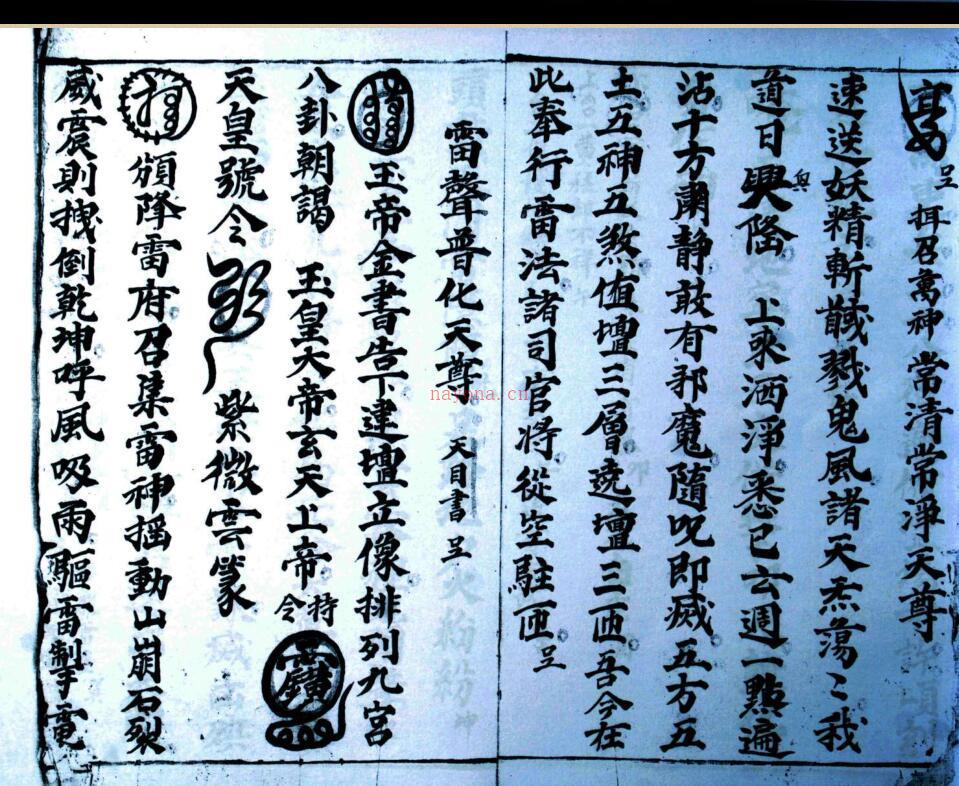 呈 揖召萬神 常清常淨天尊
速送妖精斬馘戮鬼風諸天炁蕩〻我
道日興隆 上來洒淨悉已玄週一點遍
沾十方肅静敢有邪魔隨呪即滅五方五
土五神五煞值壇三層遶壇三匝吾今在
此奉行雷法諸司官將從空駐匝 呈
雷聲普化天尊 天目書 呈
玉帝金書告下建壇立像排列九宮
八卦朝謁 玉皇大帝玄天上帝 特令
天皇號令 紫微雲篆
頒降雷府召集雷神揺動山崩石裂
威震則拽倒乾坤呼風吸雨驅雷掣電
nayona.cn